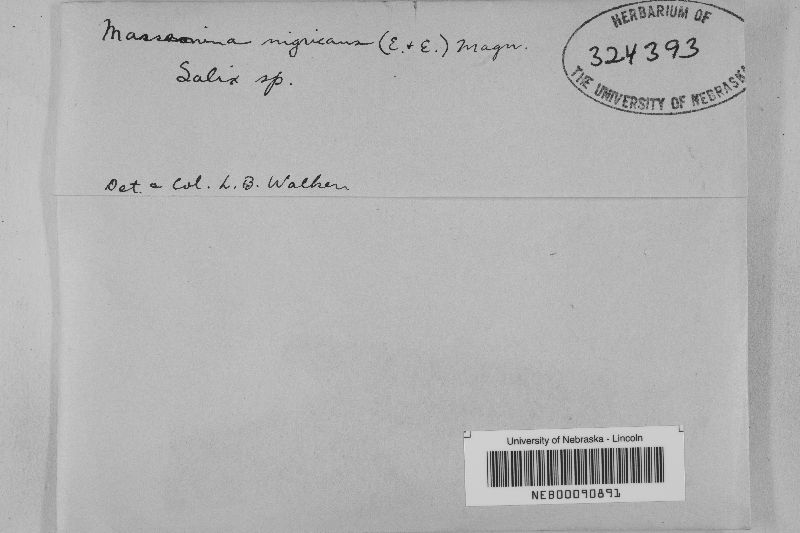 Massonina nigricans (E. + E.) Magn.
Salix sp.
HERBARIUM OF
324393
THE UNIVERSITY OF NEBRASKA
Det. & Col. L. B. Walker
University of Nebraska - Lincoln
NEB00090891